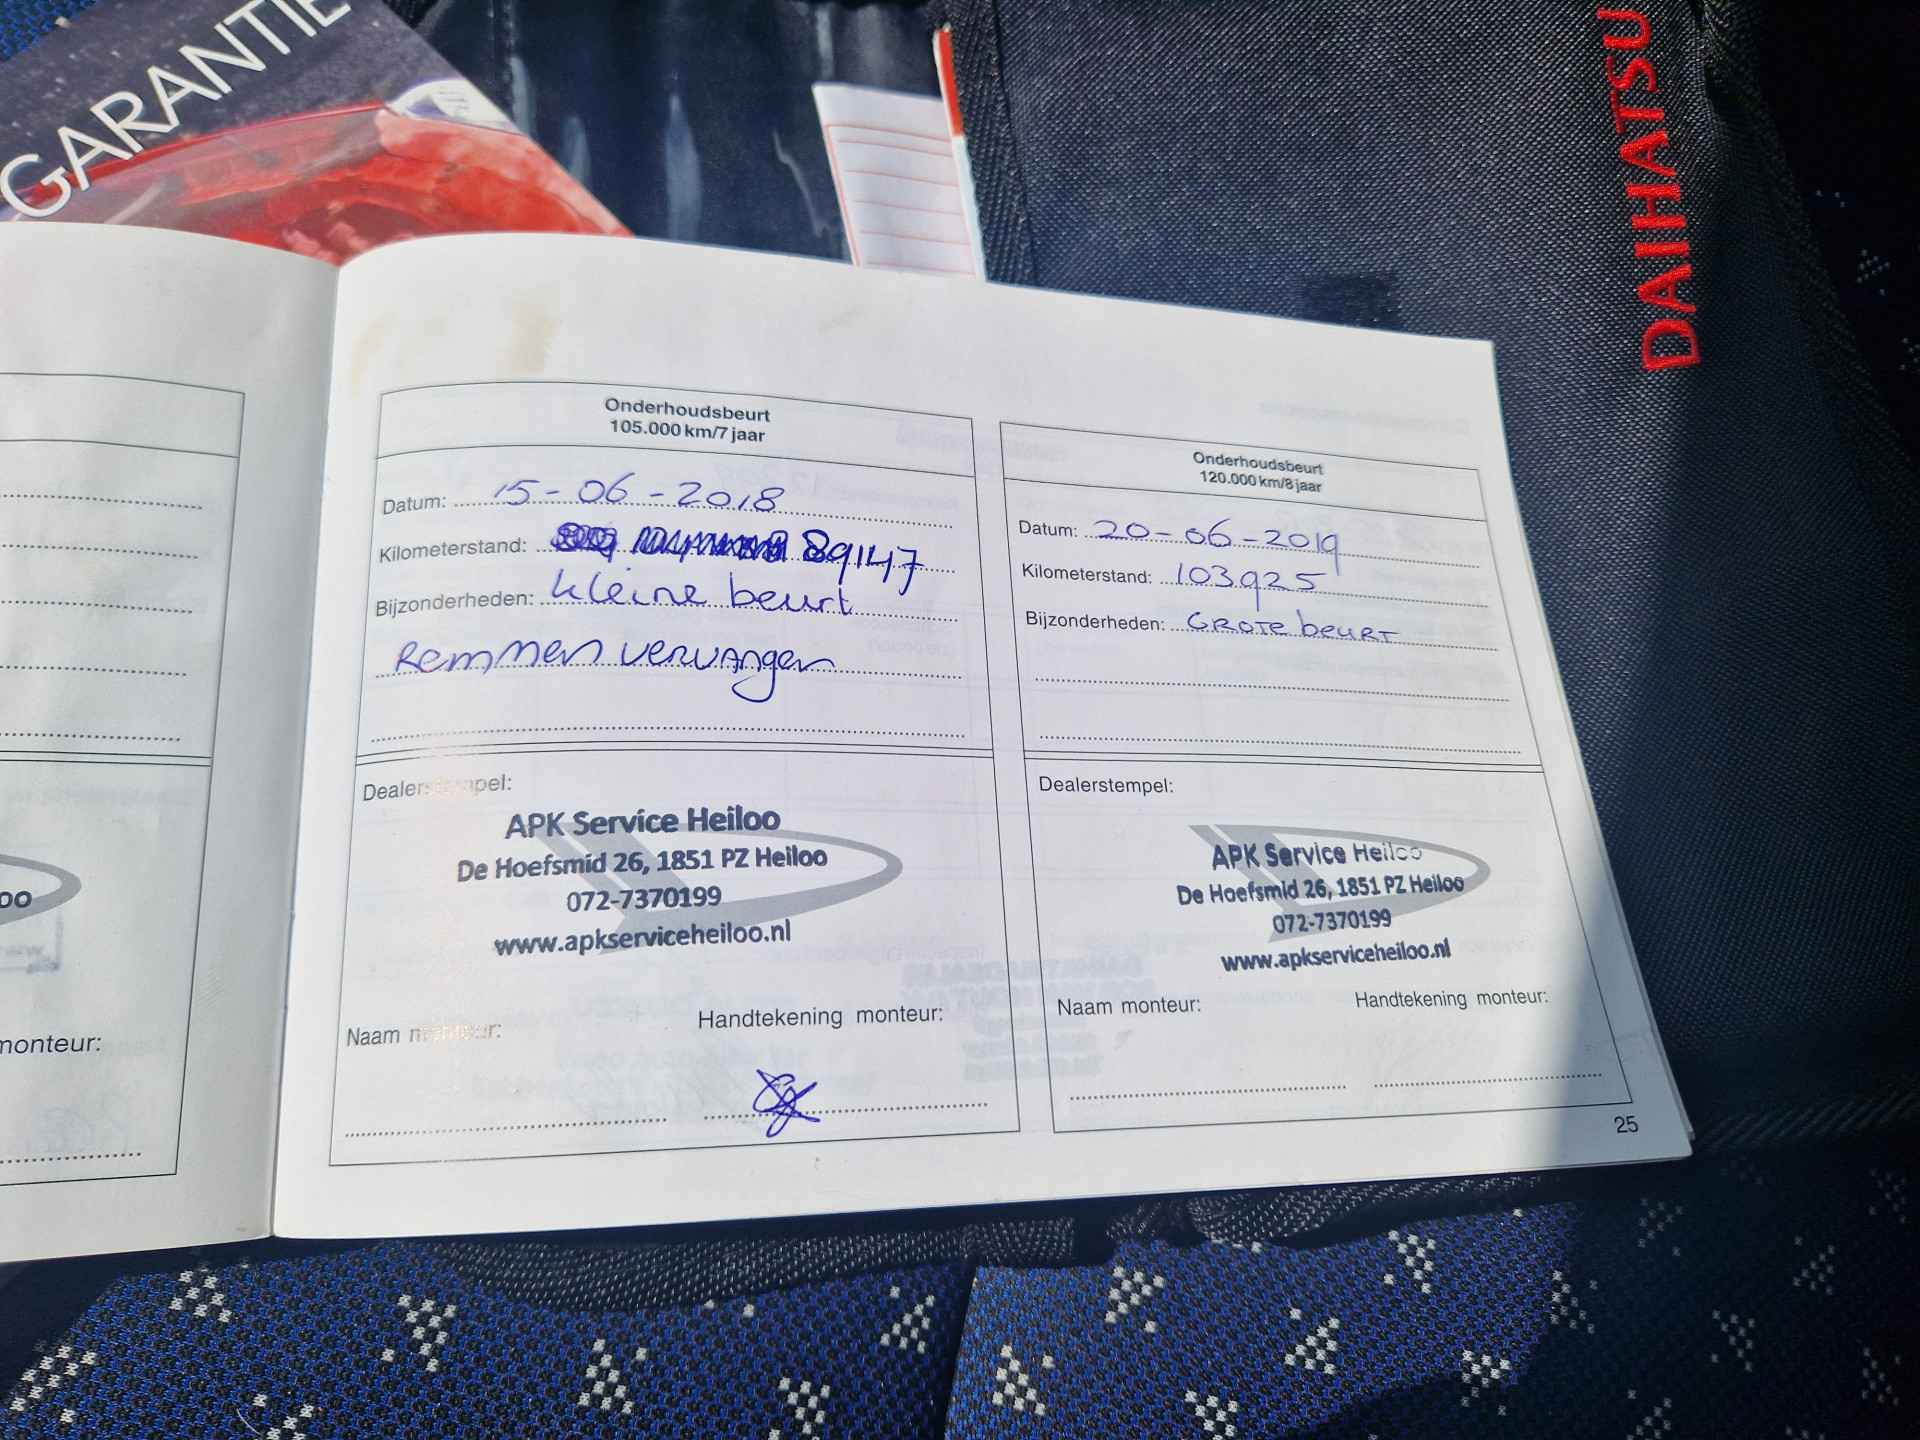 GARANTIE
DAIHATSU
Onderhoudsbeurt
105.000 km/7 jaar
Datum: 15-06-2018
Kilometerstand: 89147
Bijzonderheden: kleine beurt
Remmen vervangen
Dealerstempel:
APK Service Heiloo
De Hoefsmid 26, 1851 PZ Heiloo
072-7370199
www.apkserviceheiloo.nl
Naam monteur:
Handtekening monteur:
Onderhoudsbeurt
120.000 km/8 jaar
Datum: 20-06-2019
Kilometerstand: 103925
Bijzonderheden: GROTE BEURT
Dealerstempel:
APK Service Heiloo
De Hoefsmid 26, 1851 PZ Heiloo
072-7370199
www.apkserviceheiloo.nl
Naam monteur:
Handtekening monteur:
25
oo
monteur: